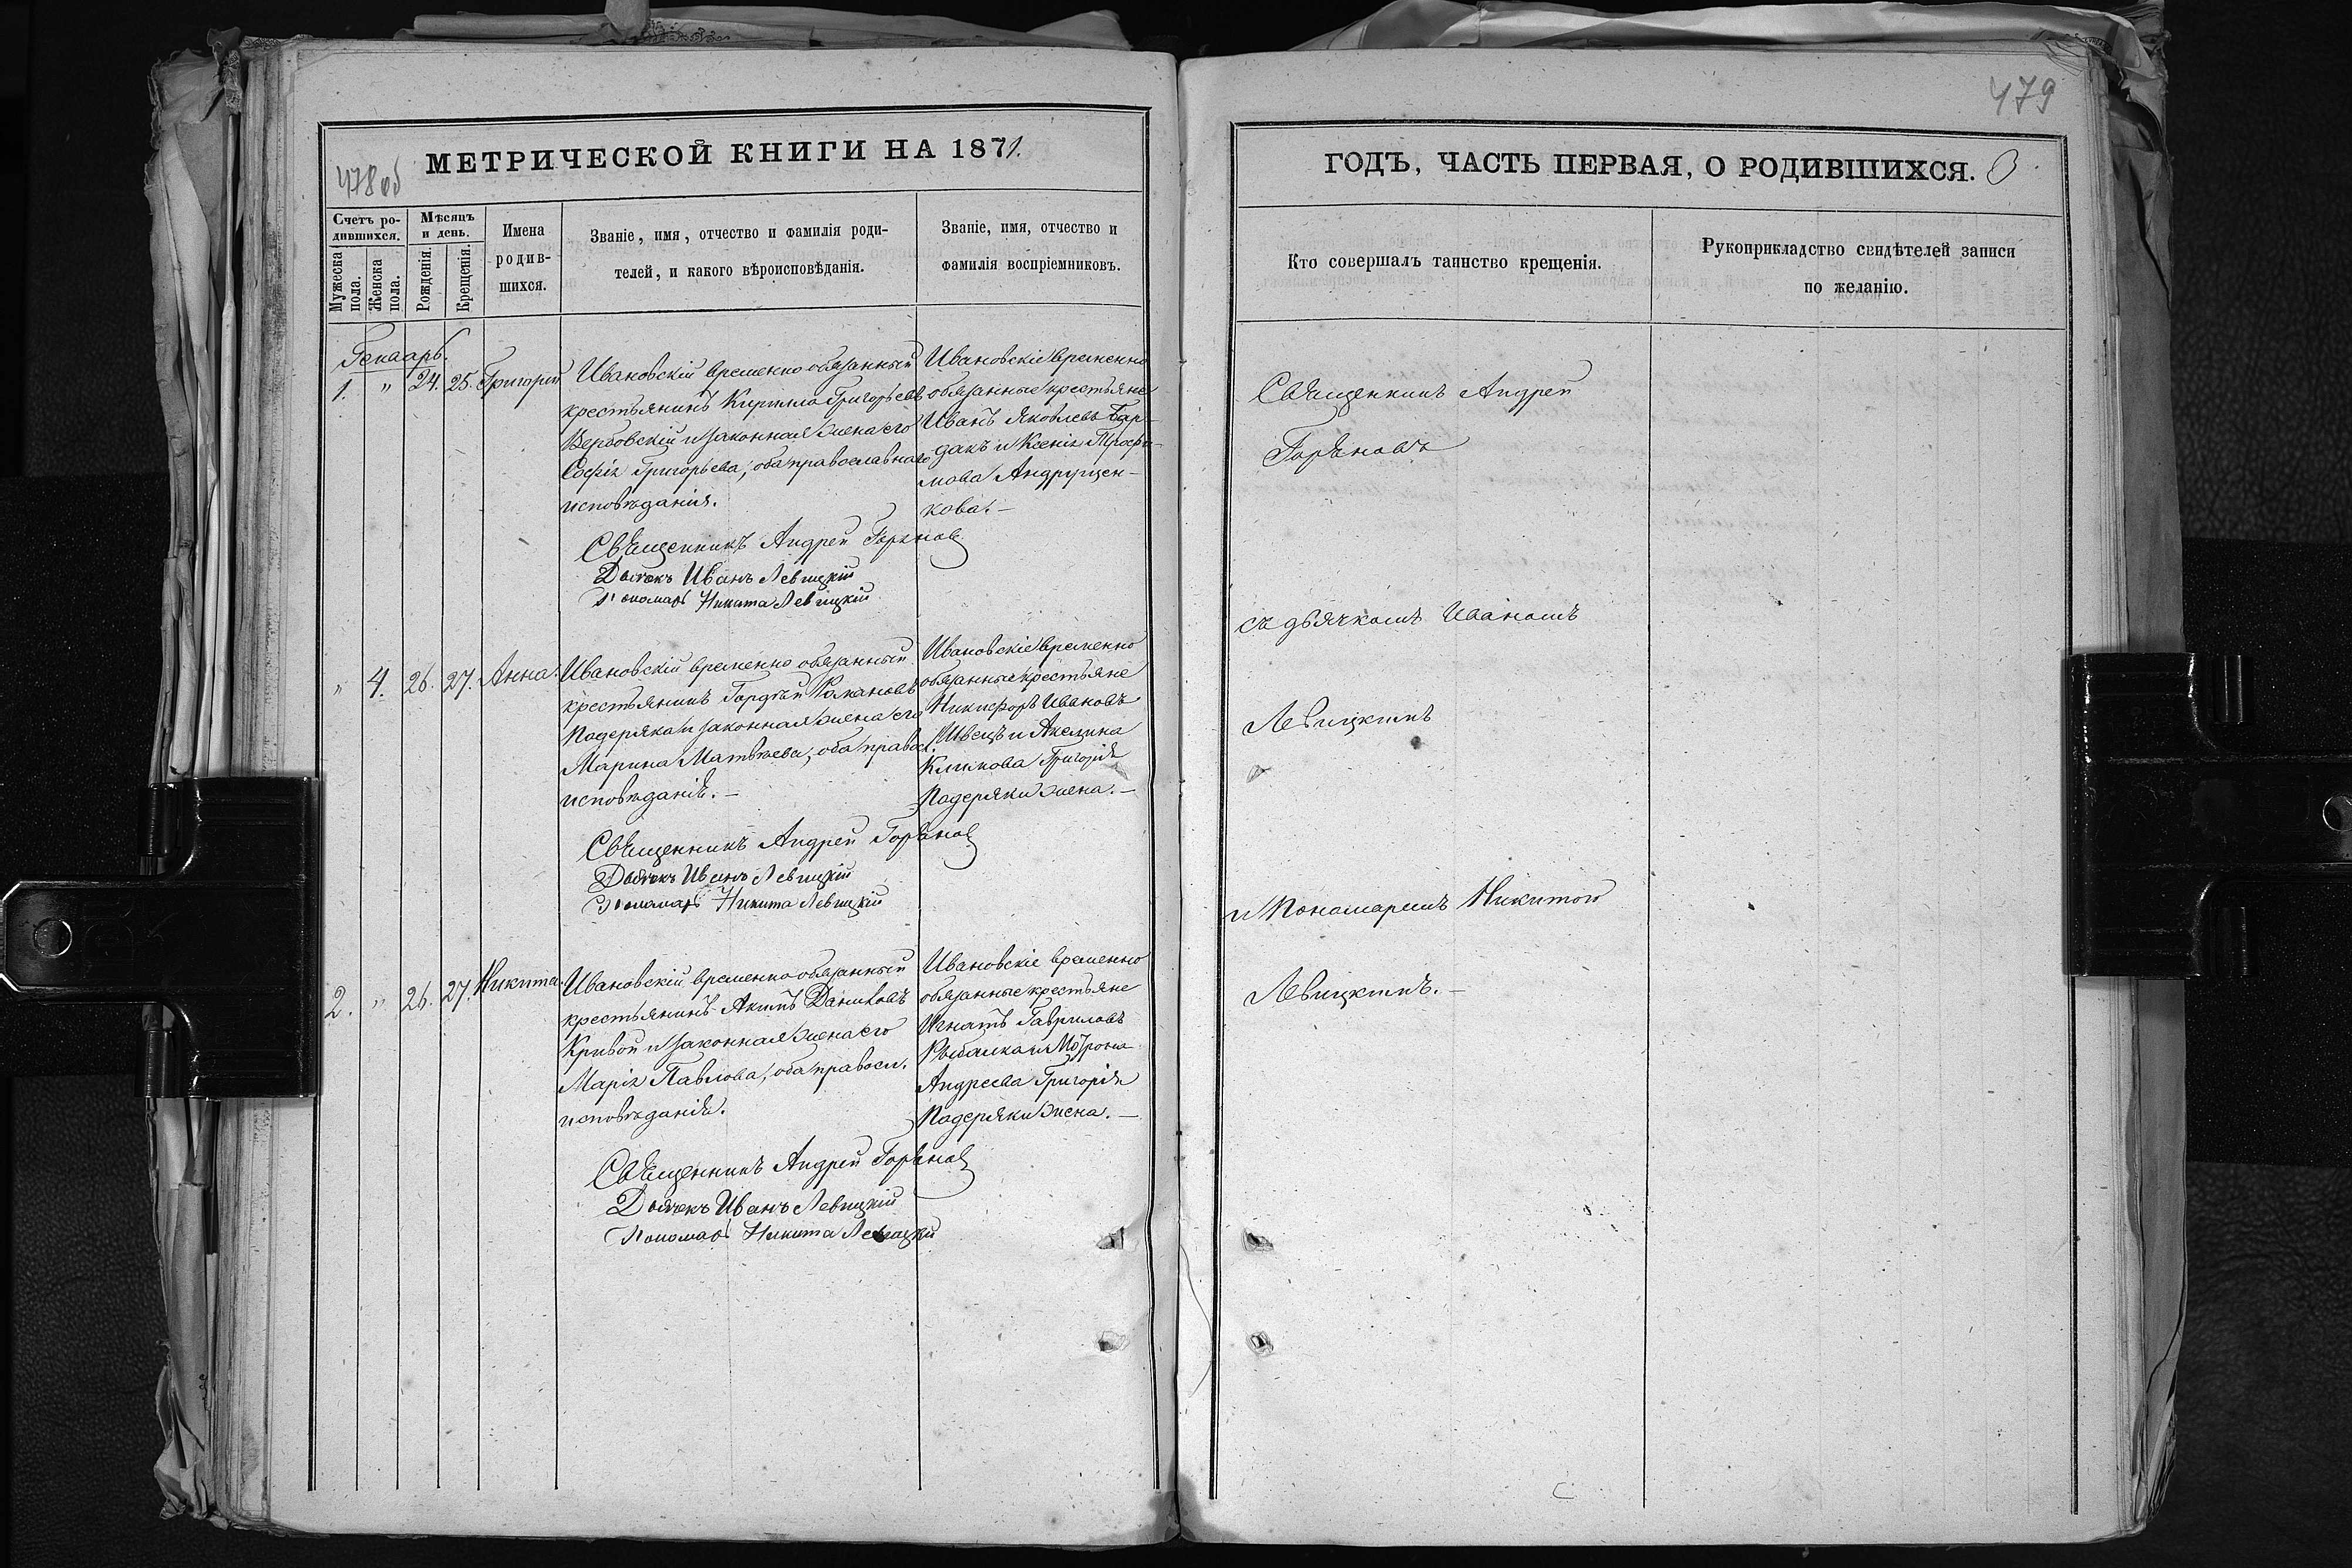 478 об
МЕТРИЧЕСКОЙ КНИГИ НА 1871.
Счетъ ро-
дившихся.
Мужеска
пола.
Женска
пола.
Мѣсяцъ
и день.
Рожденія.
Крещенія.
Имена
родив-
шихся.
Званіе, имя, отчество и фамилія роди-
телей, и какого вѣроисповѣданія.
Званіе, имя, отчество и
фамилія воспріемниковъ.
Генварь.
1. " 24. 25. Григорій
Ивановскій временно обязанный
крестьянинъ Кирилло Григорьевъ
Вербовскій и законная жена его
Софія Григорьева, оба православнаго
исповѣданія.
Ивановскіе временно
обязанные крестьяне
Иванъ Яковлевъ Бар-
дакъ и Ксенія Трофи-
мова Андрущен-
кова. —
Священникъ Андрей Горяновъ
Дьячекъ Иванъ Левицкій
Пономарь Никита Левицкій
" 4. 26. 27. Анна.
Ивановскій временно обязанный
крестьянинъ Гордѣй Романовъ
Падеряка и законная жена его
Марина Матвѣева, оба правосл.
исповѣданія. —
Ивановскіе временно
обязанные крестьяне
Никифоръ Ивановъ
Швецъ и Акелина
Климова Григорія
Падеряки жена. —
Священникъ Андрей Горяновъ
Дьячекъ Иванъ Левицкій
Пономарь Никита Левицкій
2. " 26. 27. Никита.
Ивановскій временно обязанный
крестьянинъ Акимъ Даниловъ
Кривой и законная жена его
Марія Павлова, оба правосл.
исповѣданія.
Ивановскіе временно
обязанные крестьяне
Игнатъ Гавриловъ
Рыбалка и Мотрона
Андреева Григорія
Падеряки жена. —
Священникъ Андрей Горяновъ
Дьячекъ Иванъ Левицкій
Пономарь Никита Левицкій
479
ГОДЪ, ЧАСТЬ ПЕРВАЯ, О РОДИВШИХСЯ.
Кто совершалъ таинство крещенія.
Рукоприкладство свидѣтелей записи
по желанію.
Священникъ Андрей
Горяновъ
съ дьячкомъ Иваномъ
Левицкимъ
и Пономаремъ Никитою
Левицкимъ. —